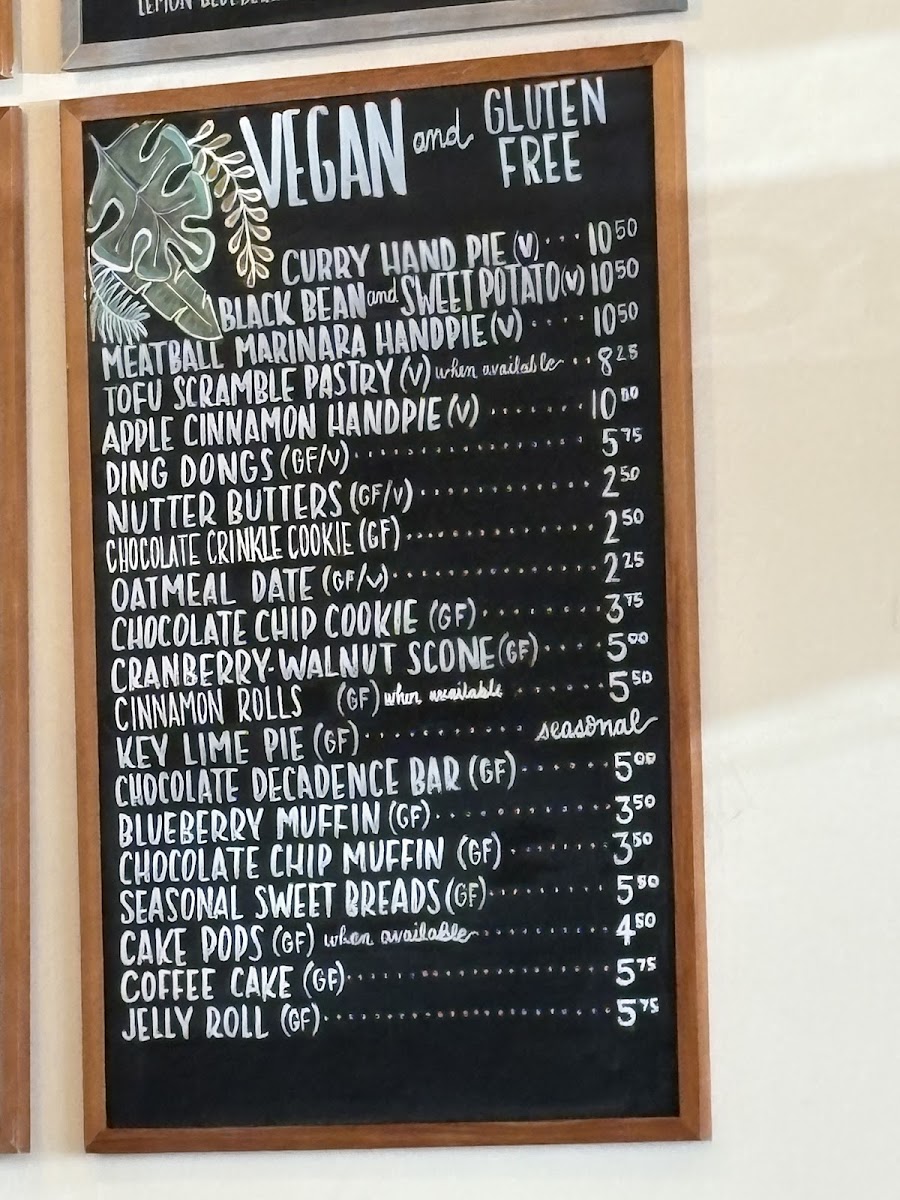 VEGAN and GLUTEN FREE
CURRY HAND PIE (V) ... 10 50
BLACK BEAN and SWEET POTATO (V) 10 50
MEATBALL MARINARA HANDPIE (V) .... 10 50
TOFU SCRAMBLE PASTRY (V) when available .. 8 25
APPLE CINNAMON HANDPIE (V) ...... 10 00
DING DONGS (GF/V) ...... 5 75
NUTTER BUTTERS (GF/V) ...... 2 50
CHOCOLATE CRINKLE COOKIE (GF) ...... 2 50
OATMEAL DATE (GF/V) ...... 2 25
CHOCOLATE CHIP COOKIE (GF) ...... 3 75
CRANBERRY-WALNUT SCONE (GF) .... 5 00
CINNAMON ROLLS (GF) when available ...... 5 50
KEY LIME PIE (GF) ...... seasonal
CHOCOLATE DECADENCE BAR (GF) ..... 5 00
BLUEBERRY MUFFIN (GF) ...... 3 50
CHOCOLATE CHIP MUFFIN (GF) ...... 3 50
SEASONAL SWEET BREADS (GF) ...... 5 50
CAKE POPS (GF) when available ...... 4 50
COFFEE CAKE (GF) ...... 5 75
JELLY ROLL (GF) ...... 5 75